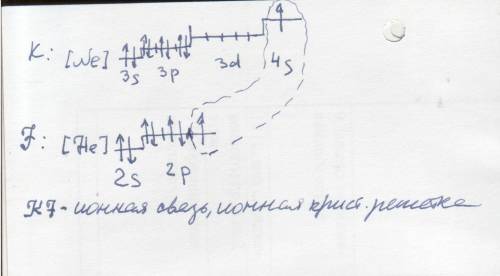 K: [Ne]
3s 3p 3d 4s
F: [He]
2s 2p
KF - ионная связь, ионная крист. решетка